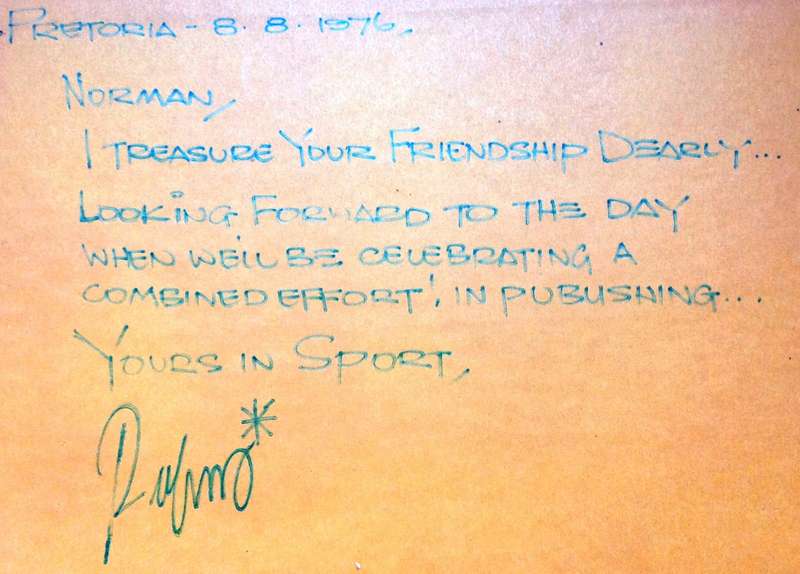 PRETORIA - 8.8.1976,
NORMAN,
I TREASURE YOUR FRIENDSHIP DEARLY...
LOOKING FORWARD TO THE DAY
WHEN WE'LL BE CELEBRATING A
COMBINED EFFORT! IN PUBLISHING...
YOURS IN SPORT,